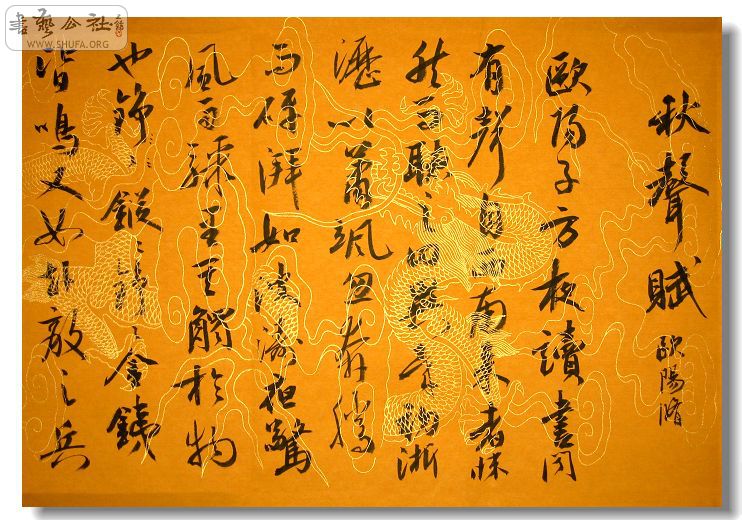 書藝公社
WWW.SHUFA.ORG
秋聲賦 歐陽脩
歐陽子方夜讀書聞
有聲自西南來者悚
然而聽之曰異哉初淅
瀝以蕭颯忽奔騰
而砰湃如波濤夜驚
風雨驟至其觸於物
也鏦〻錚〻金鐵
皆鳴又如赴敵之兵